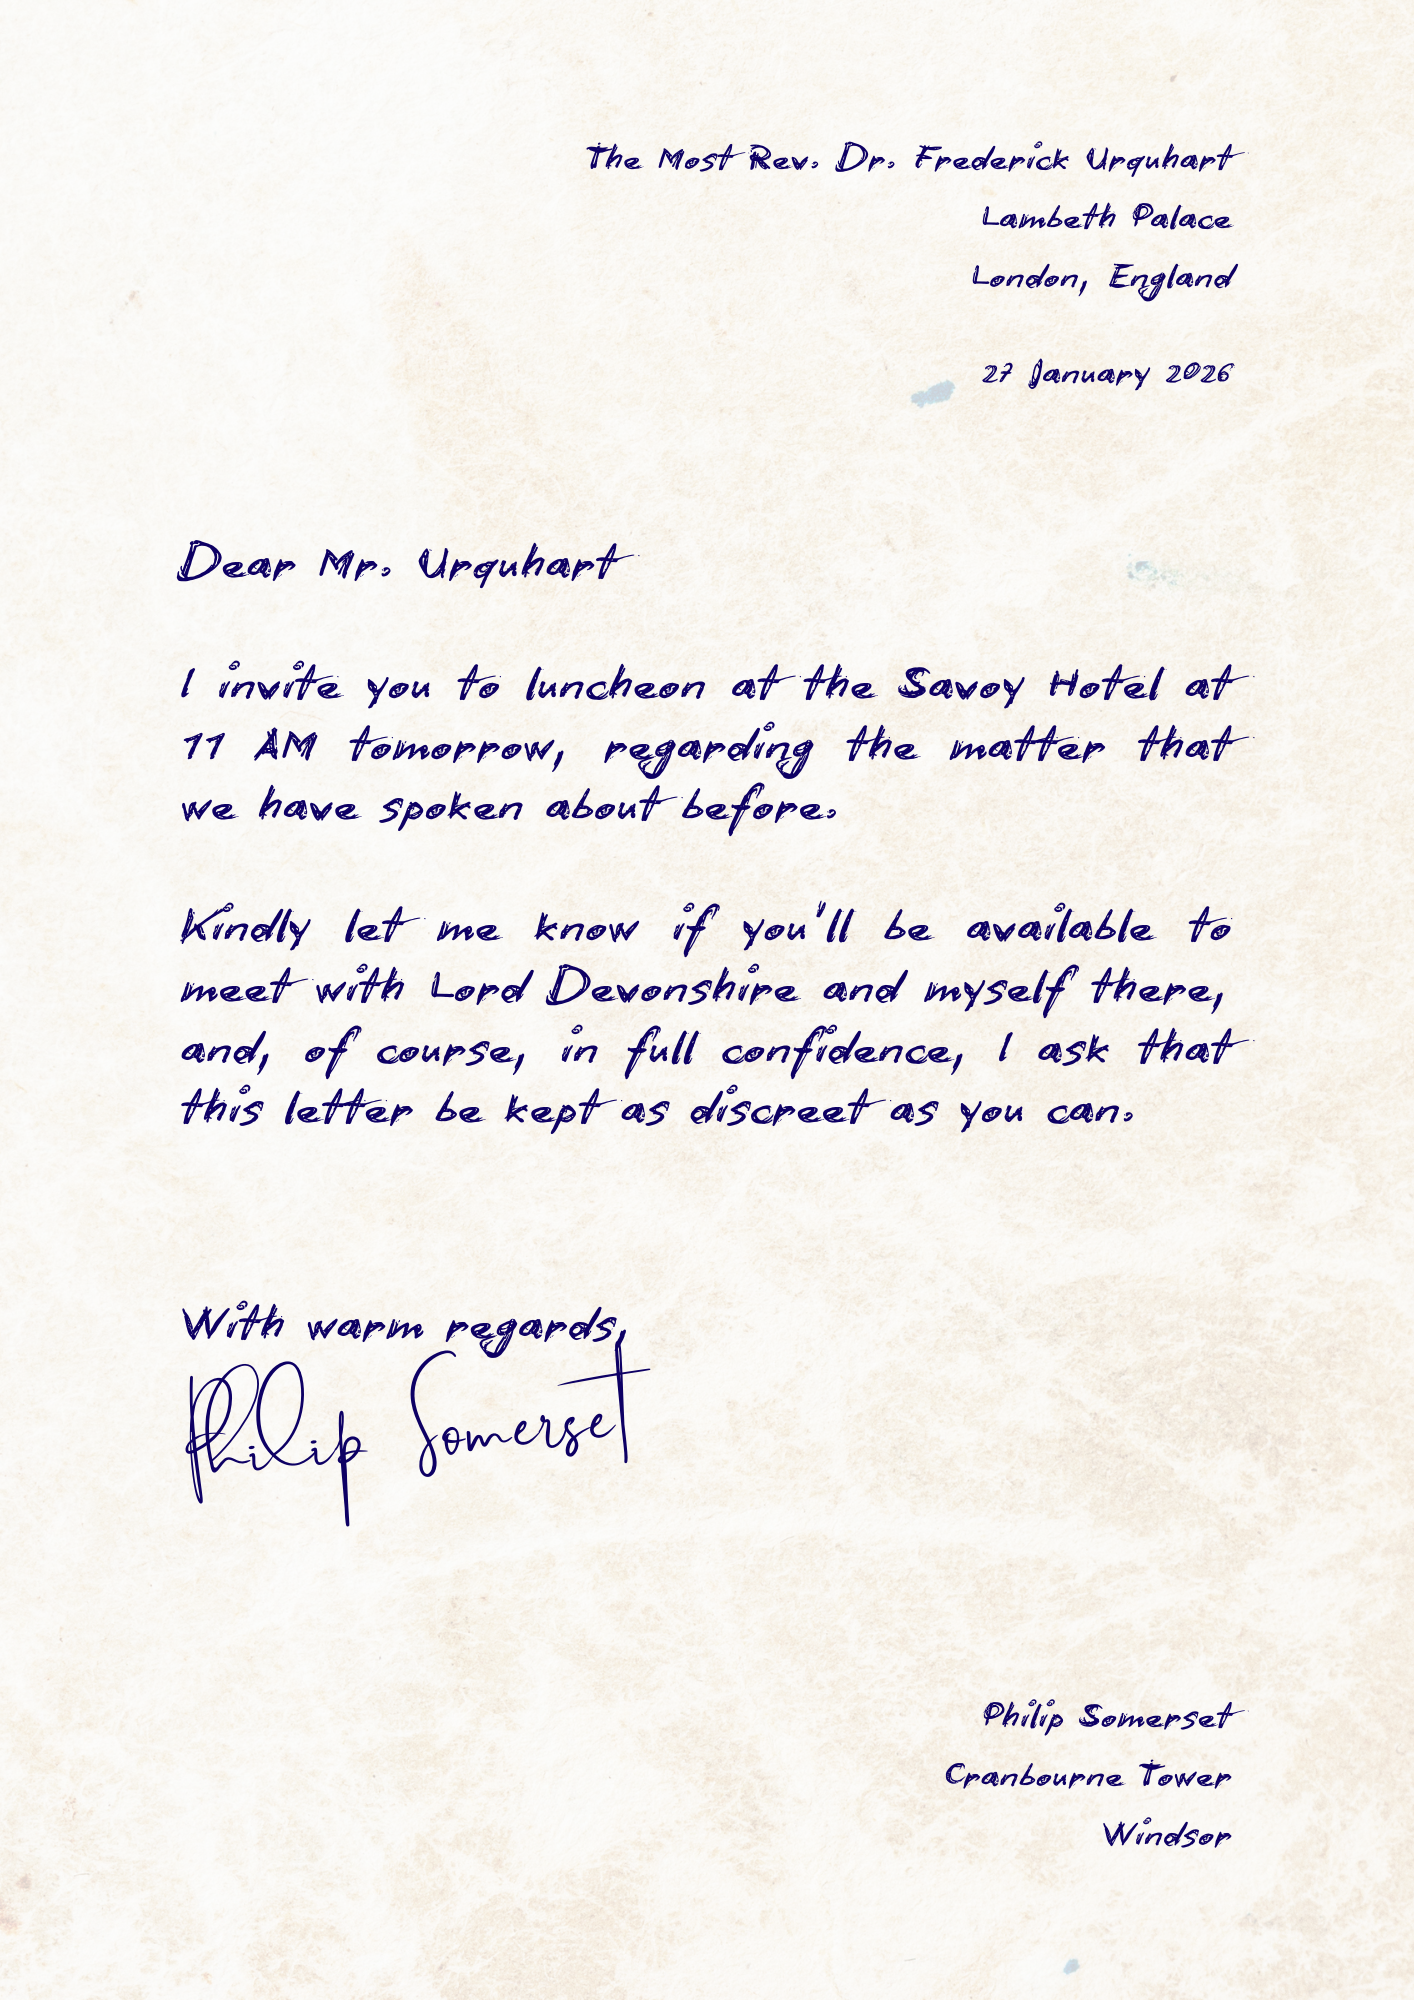 The Most Rev. Dr. Frederick Urquhart
Lambeth Palace
London, England
27 January 2026
Dear Mr. Urquhart
I invite you to luncheon at the Savoy Hotel at
11 AM tomorrow, regarding the matter that
we have spoken about before.
Kindly let me know if you'll be available to
meet with Lord Devonshire and myself there,
and, of course, in full confidence, I ask that
this letter be kept as discreet as you can.
With warm regards,
Philip Somerset
Philip Somerset
Cranbourne Tower
Windsor